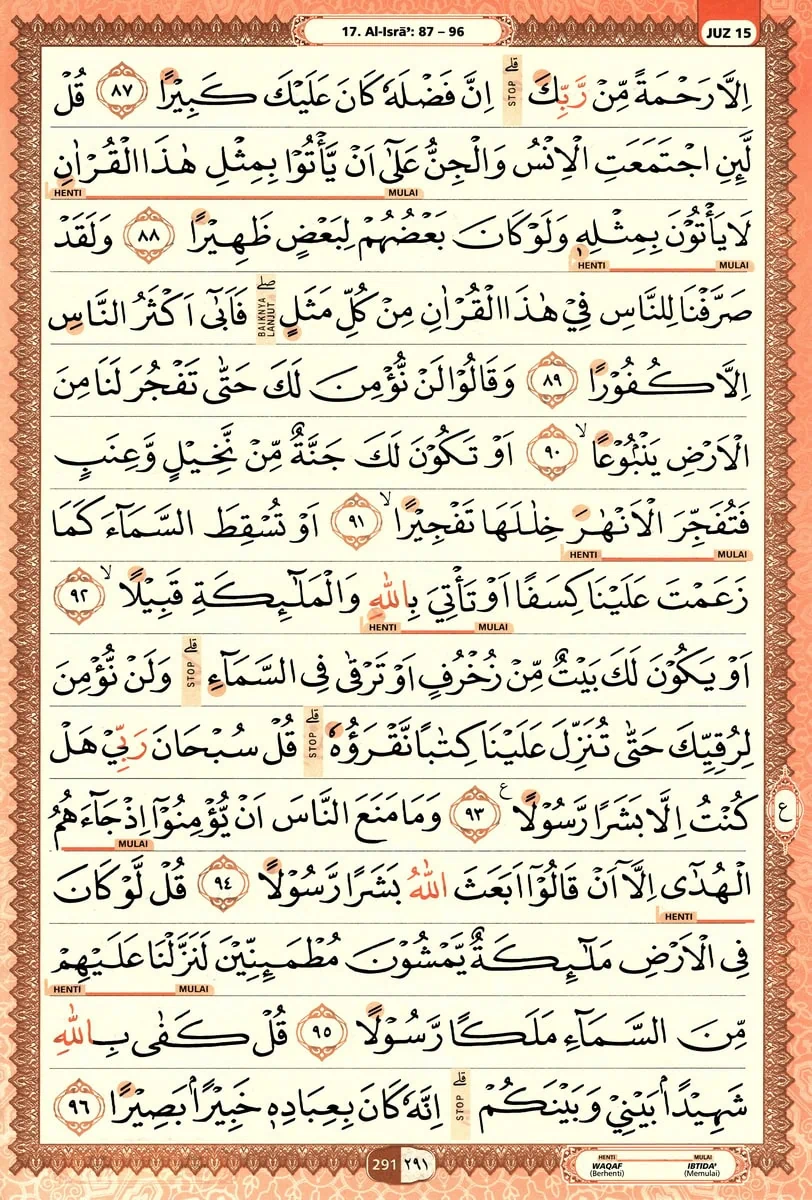 17. Al-Isrā’: 87 – 96
JUZ 15
اِلَّا رَحْمَةً مِّنْ رَّبِّكَ ۗ STOP اِنَّ فَضْلَهٗ كَانَ عَلَيْكَ كَبِيْرًا ٨٧ قُلْ
لَّىِٕنِ اجْتَمَعَتِ الْاِنْسُ وَالْجِنُّ عَلٰٓى اَنْ يَّأْتُوْا بِمِثْلِ هٰذَا الْقُرْاٰنِ
MULAI HENTI
لَا يَأْتُوْنَ بِمِثْلِهٖ وَلَوْ كَانَ بَعْضُهُمْ لِبَعْضٍ ظَهِيْرًا ٨٨ وَلَقَدْ
MULAI HENTI
صَرَّفْنَا لِلنَّاسِ فِيْ هٰذَا الْقُرْاٰنِ مِنْ كُلِّ مَثَلٍۖ BAIKNYA LANJUT فَاَبٰىٓ اَكْثَرُ النَّاسِ
اِلَّا كُفُوْرًا ٨٩ وَقَالُوْا لَنْ نُّؤْمِنَ لَكَ حَتّٰى تَفْجُرَ لَنَا مِنَ
الْاَرْضِ يَنْۢبُوْعًاۙ ٩٠ اَوْ تَكُوْنَ لَكَ جَنَّةٌ مِّنْ نَّخِيْلٍ وَّعِنَبٍ
فَتُفَجِّرَ الْاَنْهٰرَ خِلٰلَهَا تَفْجِيْرًاۙ ٩١ اَوْ تُسْقِطَ السَّمَاۤءَ كَمَا
MULAI HENTI
زَعَمْتَ عَلَيْنَا كِسَفًا اَوْ تَأْتِيَ بِاللّٰهِ وَالْمَلٰۤىِٕكَةِ قَبِيْلًاۙ ٩٢
MULAI HENTI
اَوْ يَكُوْنَ لَكَ بَيْتٌ مِّنْ زُخْرُفٍ اَوْ تَرْقٰى فِى السَّمَاۤءِ ۗ STOP وَلَنْ نُّؤْمِنَ
لِرُقِيِّكَ حَتّٰى تُنَزِّلَ عَلَيْنَا كِتٰبًا نَّقْرَؤُهٗۗ STOP قُلْ سُبْحَانَ رَبِّيْ هَلْ
كُنْتُ اِلَّا بَشَرًا رَّسُوْلًا ع ٩٣ وَمَا مَنَعَ النَّاسَ اَنْ يُّؤْمِنُوْٓا اِذْ جَاۤءَهُمُ
ع
MULAI
الْهُدٰٓى اِلَّآ اَنْ قَالُوْٓا اَبَعَثَ اللّٰهُ بَشَرًا رَّسُوْلًا ٩٤ قُلْ لَّوْ كَانَ
HENTI
فِى الْاَرْضِ مَلٰۤىِٕكَةٌ يَّمْشُوْنَ مُطْمَىِٕنِّيْنَ لَنَزَّلْنَا عَلَيْهِمْ
MULAI HENTI
مِّنَ السَّمَاۤءِ مَلَكًا رَّسُوْلًا ٩٥ قُلْ كَفٰى بِاللّٰهِ
شَهِيْدًاۢ بَيْنِيْ وَبَيْنَكُمْۗ STOP اِنَّهٗ كَانَ بِعِبَادِهٖ خَبِيْرًاۢ بَصِيْرًا ٩٦
291 ٢٩١
HENTI MULAI
WAQAF IBTIDA'
(Berhenti) (Memulai)